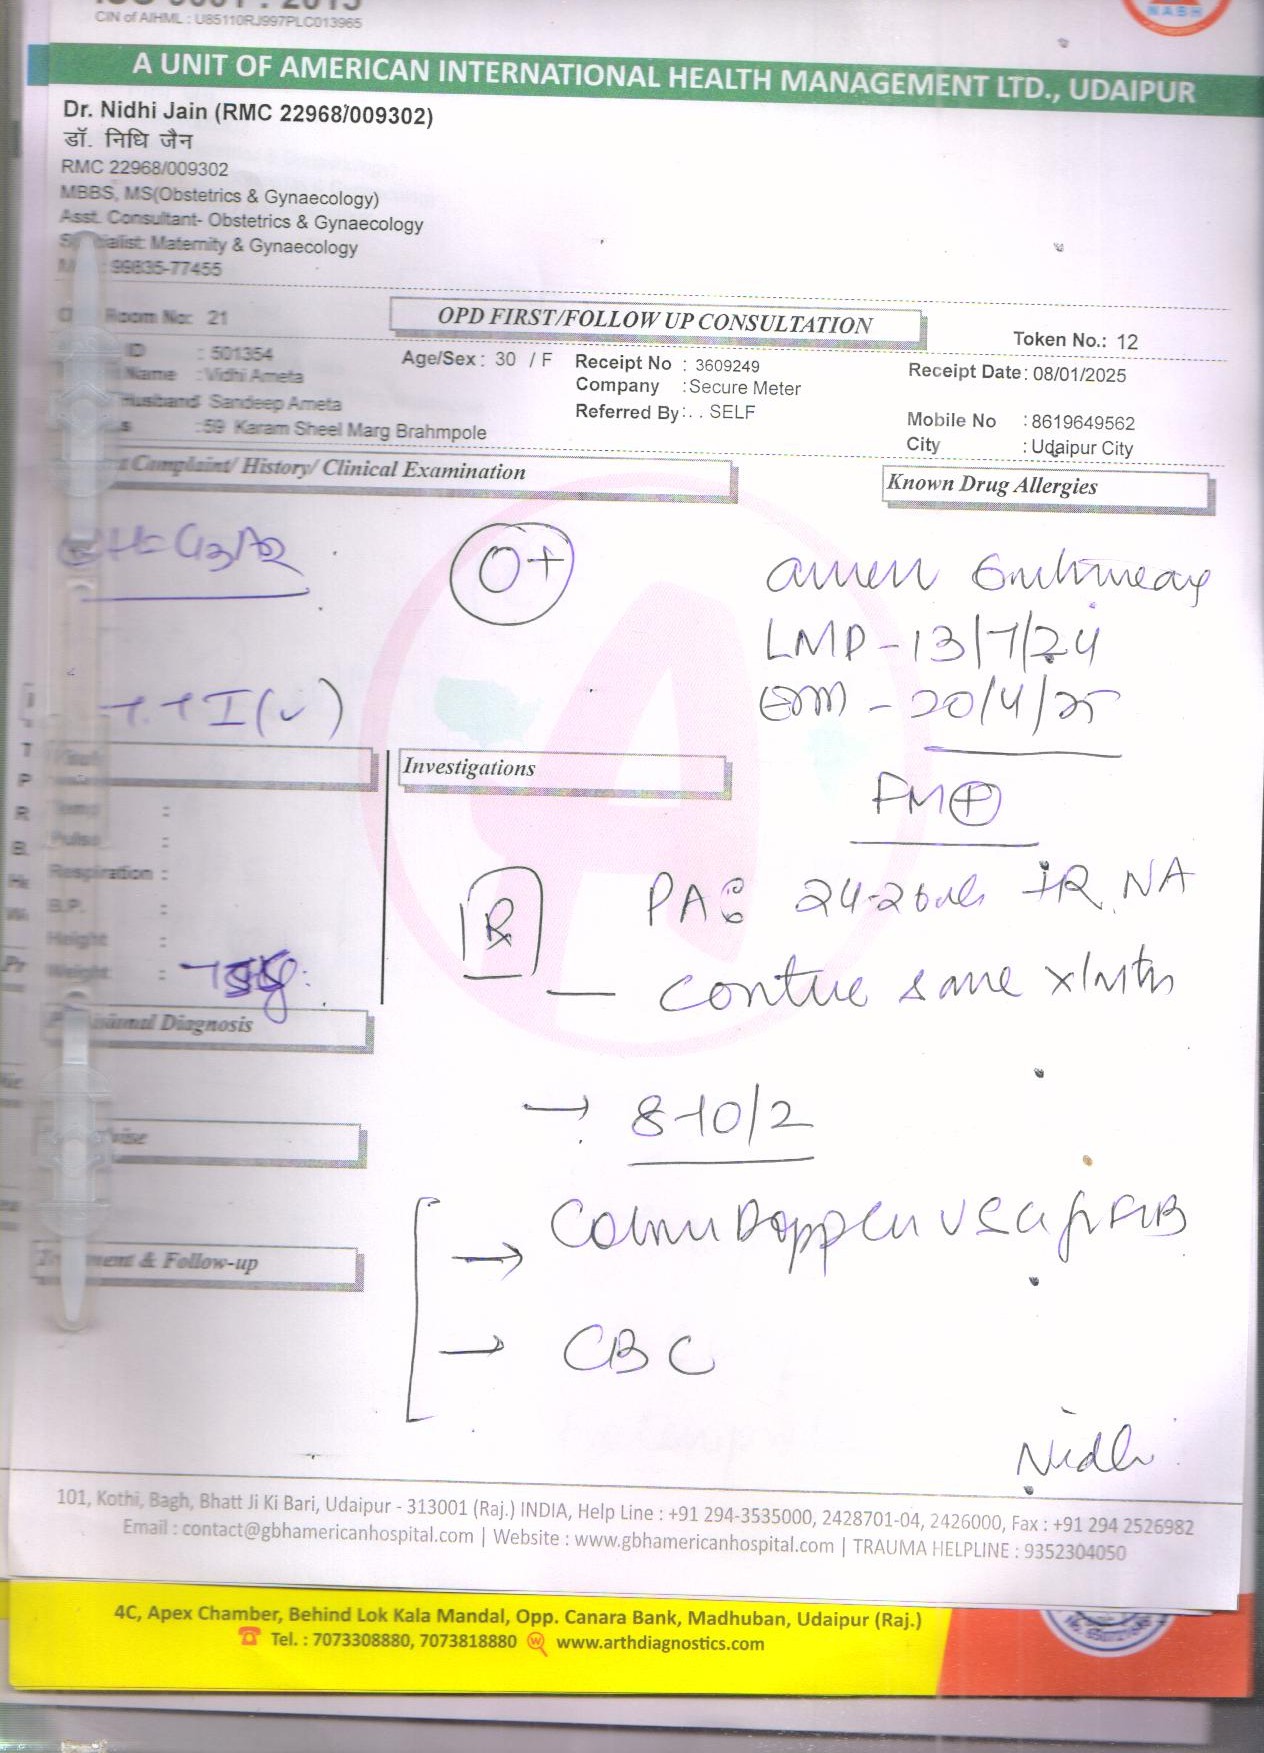 CIN of AIHML : U85110RJ997PLC013965
NABH
A UNIT OF AMERICAN INTERNATIONAL HEALTH MANAGEMENT LTD., UDAIPUR
Dr. Nidhi Jain (RMC 22968/009302)
डॉ. निधि जैन
RMC 22968/009302
MBBS, MS(Obstetrics & Gynaecology)
Asst. Consultant- Obstetrics & Gynaecology
Maternity & Gynaecology
: 99835-77455
Room No: 21
OPD FIRST/FOLLOW UP CONSULTATION
Token No.: 12
ID : 501354
Age/Sex : 30 / F
Receipt No : 3609249
Receipt Date: 08/01/2025
Name : Vidhi Ameta
Company : Secure Meter
Husband Sandeep Ameta
Referred By:. . SELF
Mobile No : 8619649562
:59 Karam Sheel Marg Brahmpole
City : Udaipur City
Complaint/ History/ Clinical Examination
Known Drug Allergies
G3A2
O+
LMP - 13/7/24
- 20/4/25
I(✓)
Investigations
FM⊕
Temp :
Pulse :
Respiration :
B.P. :
Height :
Weight :
Rx
24-26
NA
same
Diagnosis
→ 8-10/2
→ Doppler
& Follow-up
→ CBC
Nidhi
101, Kothi, Bagh, Bhatt Ji Ki Bari, Udaipur - 313001 (Raj.) INDIA, Help Line : +91 294-3535000, 2428701-04, 2426000, Fax : +91 294 2526982
Email : contact@gbhamericanhospital.com | Website : www.gbhamericanhospital.com | TRAUMA HELPLINE : 9352304050
4C, Apex Chamber, Behind Lok Kala Mandal, Opp. Canara Bank, Madhuban, Udaipur (Raj.)
Tel. : 7073308880, 7073818880 www.arthdiagnostics.com